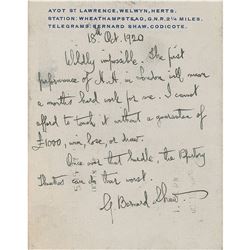 AYOT ST LAWRENCE, WELWYN, HERTS.
STATION: WHEATHAMPSTEAD, G.N.R. 2¼ MILES.
TELEGRAMS: BERNARD SHAW, CODICOTE.
18th Oct. 1920
Wildly impossible. The first
performance of H.H. in London will mean
a months hard work for me. I cannot
afford to touch it without a guarantee of
£1000, win, lose, or draw.
Once over that hurdle, the Repertory
Theatres can do their worst.
G. Bernard Shaw